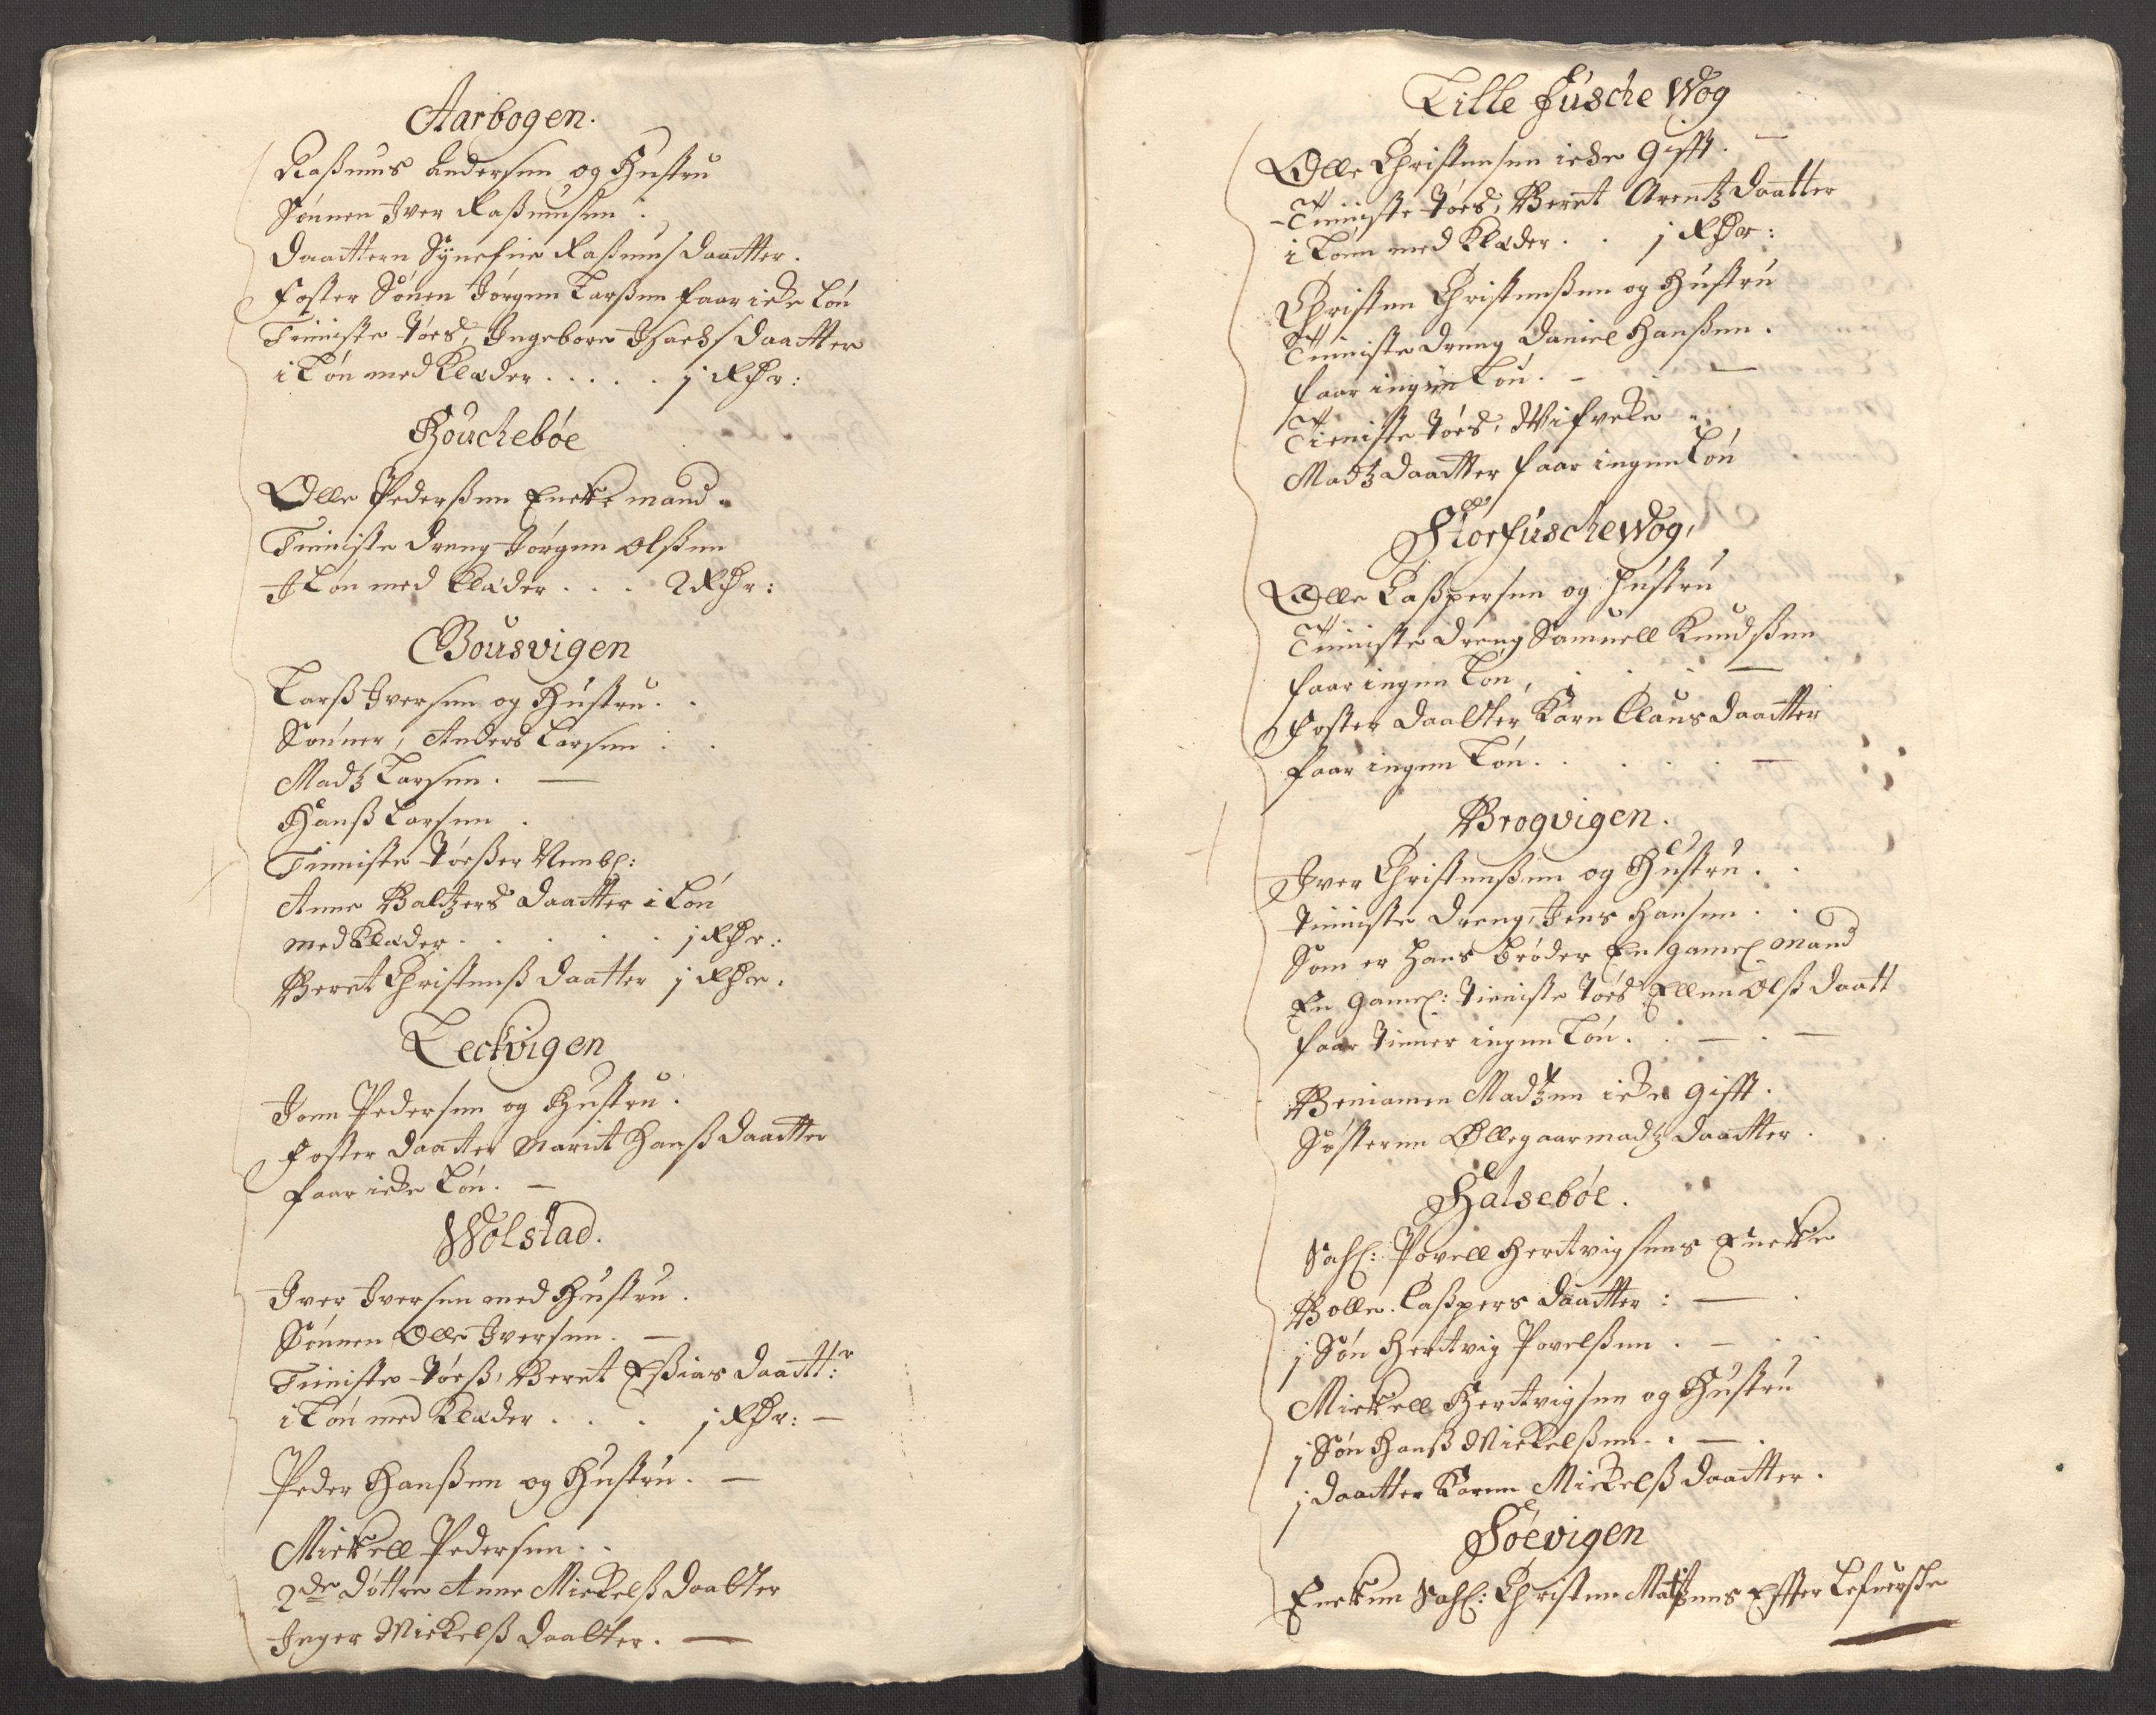 Aarbogen.
Raßmus Andersen og Hustru
Sønnen Iver Raßmusen
Daattern Synefue Raßmus daatter.
Foster Sønen Jørgen Larßen faar icke Løn
Tieniste Tøes, Ingebore Isachs daatter
i Løn med Klæder . . . . . j Rdr:
Houchebøe
Olle Pederßen Encke mand.
Tieniste dreng Jørgen Olßen
I Løn med klæder . . . 2 Rdr:
Bousvigen
Larß Iversen og Hustru.
Sønner, Anders Larsen
Madz Larsen. —
Hanß Larsen
Tieniste Tøeßer Nembl:
Anne Baltzers daatter i Løn
med Klæder . . . . . j Rdr:
Beret Christenß daatter j Rdr.
Leckvigen
Jonn Pedersen og Hustru.
Foster daatter Marit Hanß daatter
faar icke Løn. —
Wolstad.
Iver Iversen med Hustru.
Sønnen Olle Iversen. —
Tieniste Tøeß, Beret Eßias daatt:r
i Løn med Klæder . . . j Rdr: —
Peder Hanßen og Hustru. —
Mickell Pedersen. .
2de døttre Anne Mickelß daatter
Inger Mickelß daatter. —
Lille fusche Wog
Olle Christensen icke Gifft. —
Tieniste Tøes, Beret Arentz daatter
i Lønn med Klæder . . j Rdr:
Christen Christenßen og Hustru
Tieniste dreng Daniel Hanßen.
faar ingen Løn. — —
Tieniste Tøes, Wifveke
Madz daatter faar ingen Løn
Storfuschewog,
Olle Caßpersen og Hustru
Tieniste dreng Samuell Knudßen
faar ingen Løn, . . . —
Foster daatter Karn Claus daatter
faar ingen Løn. . . . . —
Brogvigen.
Iver Christenßen og Hustru. .
Tieniste dreng, Jens Hansen . .
Som er Hans brøder En gamel mand
En Gamel: Tieniste Tøes Ellen Olß daatt
faar Tiener ingen Løn. . — . —
Beniamen Madzen icke gifft.
Søsteren Ollegaar madz daatter.
Halsebøe.
Sahl: Povell Hertvigsens Encke
Bolle Caßpers daatter: —
j Søn Hertvig Povelßen. — . .
Mickell Hertvigsen og Hustru
j Søn Hanß Mickelßen. . —
j daatter Karen Mickelß daatter.
Søevigen
Encken Sahl: Christen Matzens Effter Lefuersche